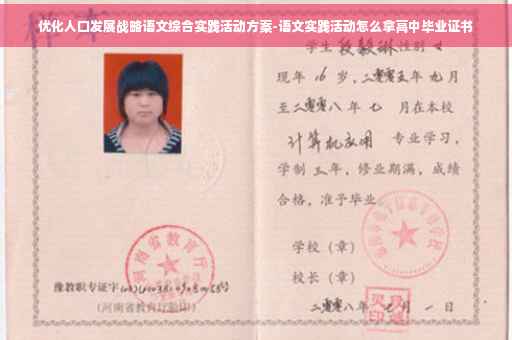 优化人口发展战略语文综合实践活动方案-语文实践活动怎么拿高中毕业证书
学生 段毅琳 性别 女
现年 16 岁，二零零五年 九月
至二零零八年 七 月在本校
计算机应用 专业学习，
学制 三年，修业期满，成绩
合格，准予毕业
学校（章）
校长（章）
二零零八年 七 月 一 日
河南省教育厅
豫教职专证字
（河南省教育厅验印）